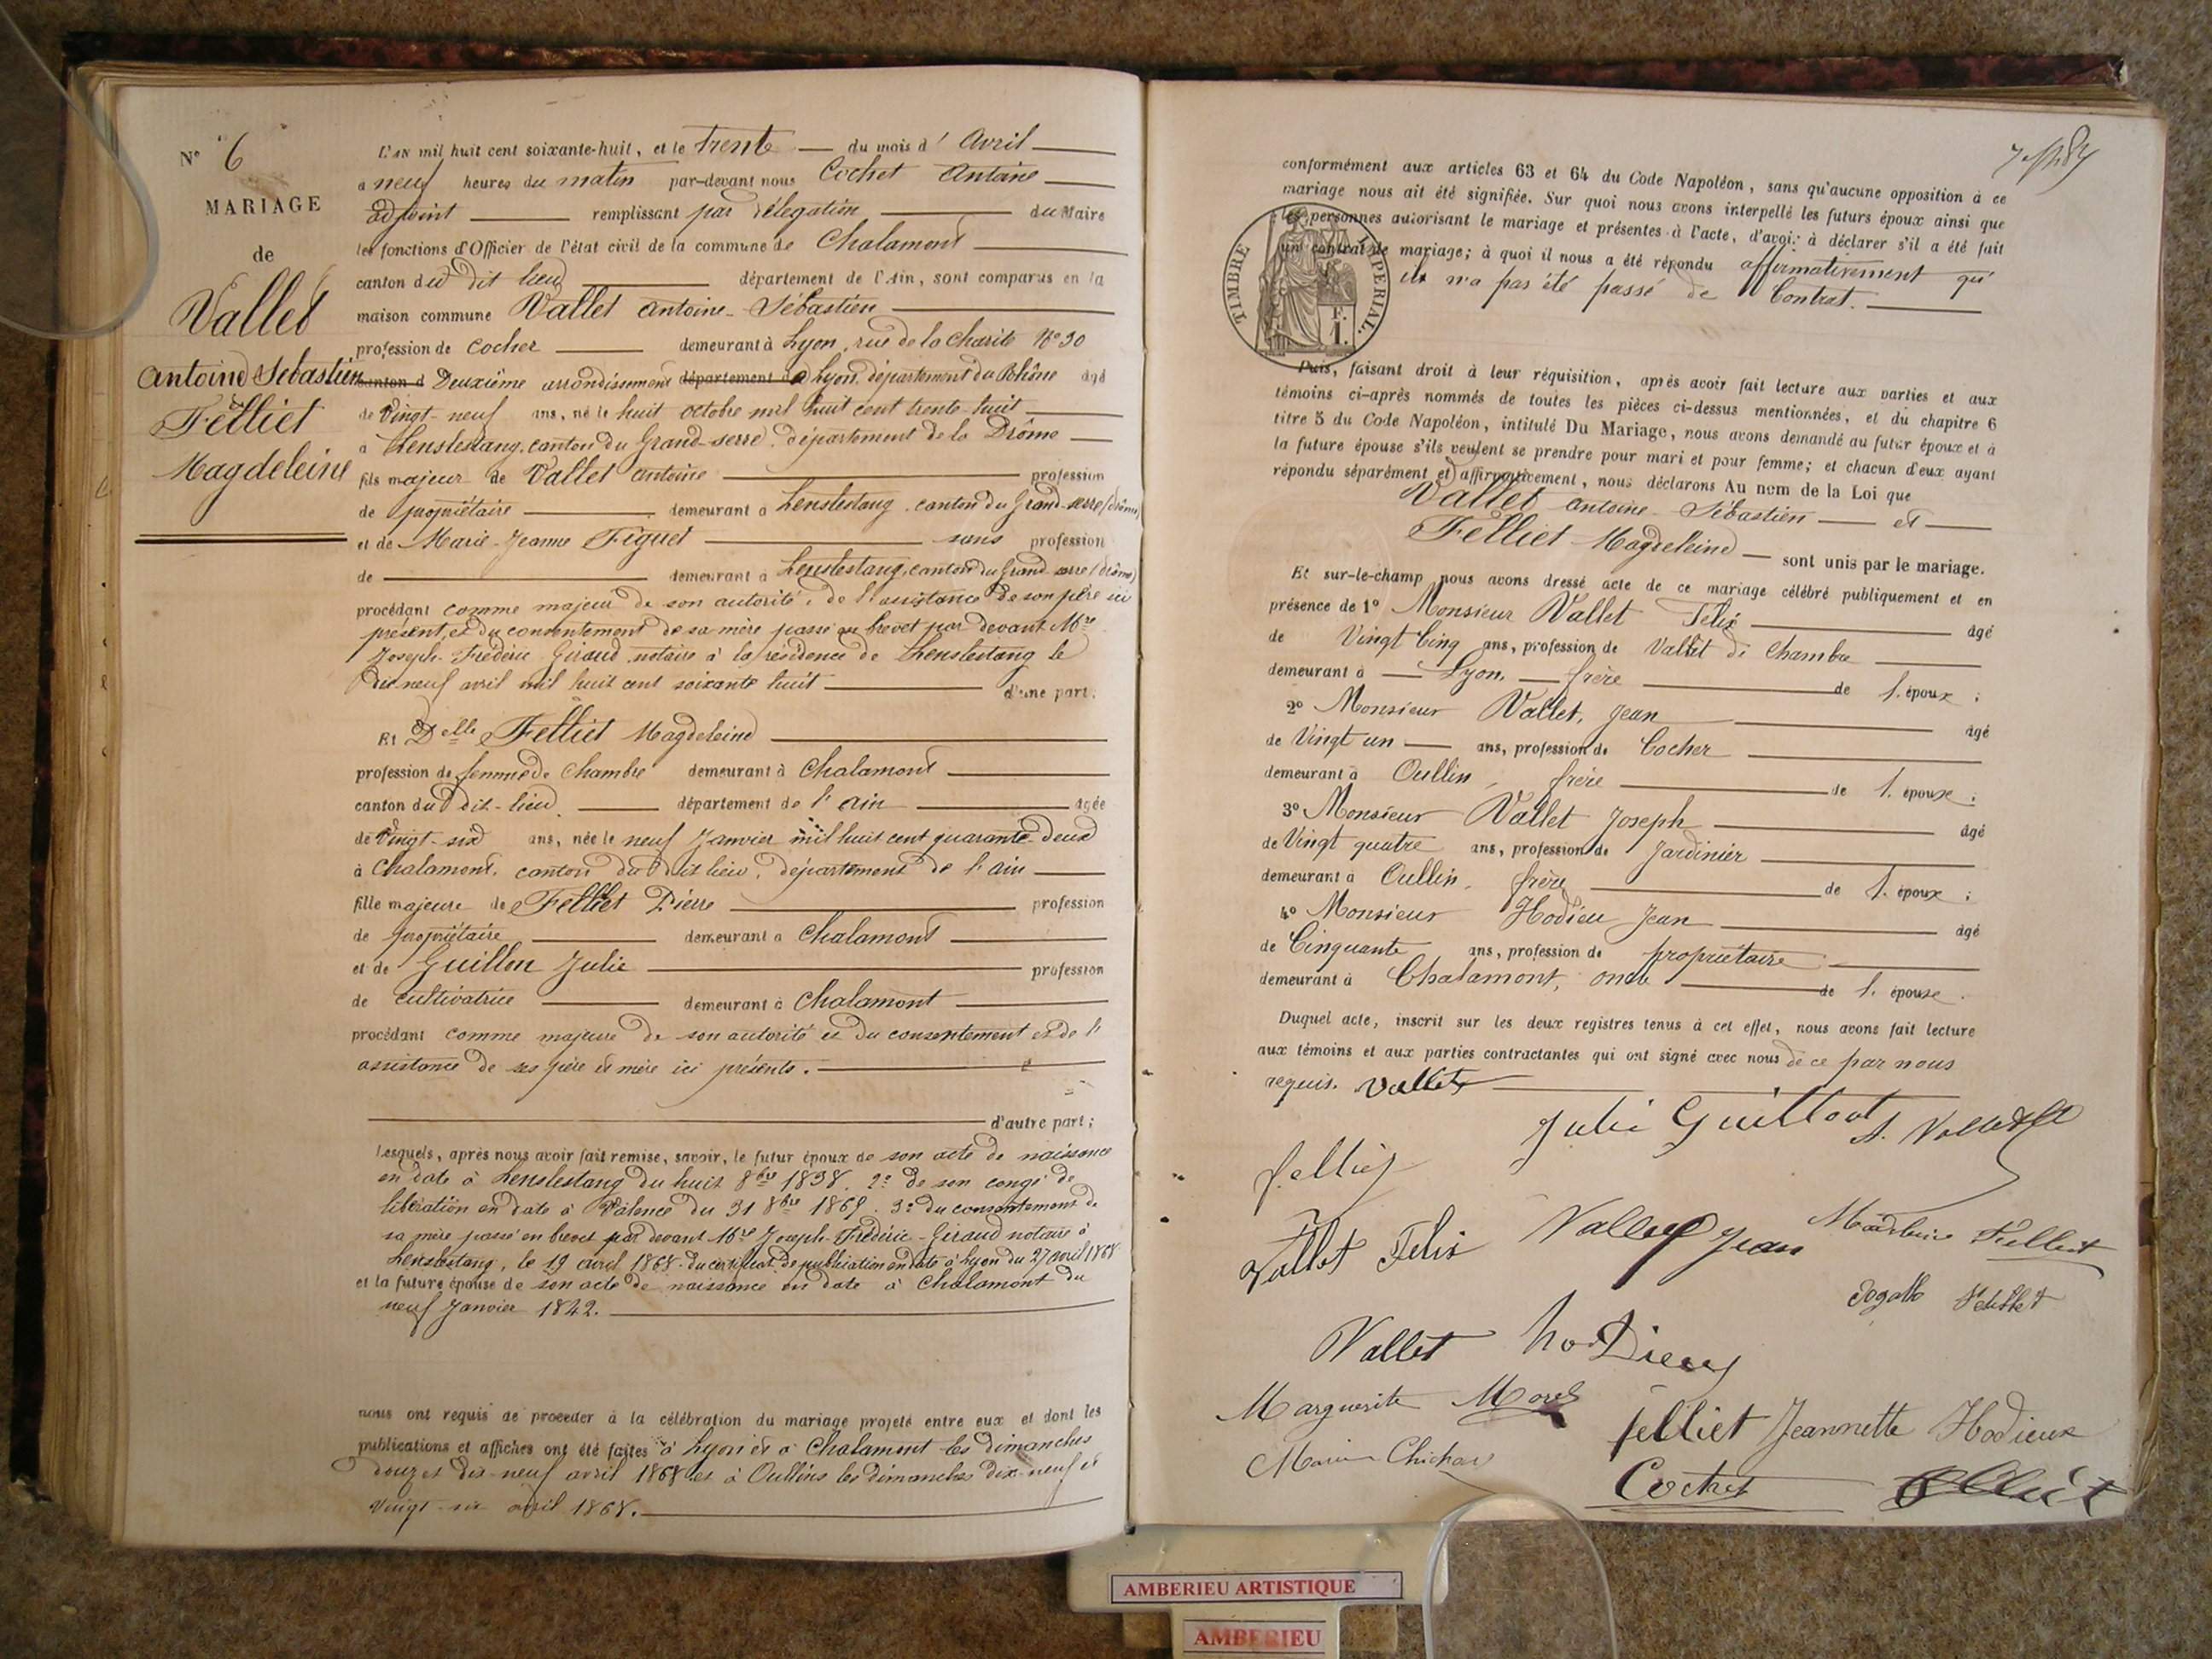 N° 6
MARIAGE
de
Vallet
Antoine Sébastien
Felliet
Magdeleine
L'AN mil huit cent soixante-huit, et le trente du mois d' Avril
à neuf heures du matin par-devant nous Cochet Antoine
adjoint remplissant par délégation du Maire
les fonctions d'Officier de l'état civil de la commune de Chalamont
canton du dit lieu département de l'Ain, sont comparus en la
maison commune Vallet Antoine-Sébastien
profession de Cocher demeurant à Lyon, rue de la Charité N° 30
canton d Deuxième arrondissement département d à Lyon, département du Rhône âgé
de Vingt-neuf ans, né le huit octobre mil huit cent trente-huit
à Lenslestang, canton du Grand-serre, département de la Drôme
fils majeur de Vallet Antoine profession
de propriétaire demeurant à Lenslestang, canton du Grand-serre (drôme)
et de Marie-Jeanne Figuet sans profession
de demeurant à Lenslestang, canton du Grand-serre (drôme)
procédant comme majeur de son autorité, de l'assistance de son père ici
présent, et du consentement de sa mère passé en brevet par devant Mtre
Joseph-Frédéric Giraud notaire à la résidence de Lenslestang le
dix neuf avril mil huit cent soixante huit d'une part;
Et Delle Felliet Magdeleine
profession de femme de Chambre demeurant à Chalamont
canton du dit-lieu département de l'ain âgée
de Vingt-six ans, née le neuf Janvier mil huit cent quarante-deux
à Chalamont, canton du dit lieu, département de l'ain
fille majeure de Felliet Pierre profession
de propriétaire demeurant à Chalamont
et de Guillon Julie profession
de cultivatrice demeurant à Chalamont
procédant comme majeure de son autorité et du consentement et de l'
assistance de ses père et mère ici présents.
d'autre part;
Lesquels, après nous avoir fait remise, savoir, le futur époux de son acte de naissance
en date à Lenslestang du huit 8bre 1838. 2° de son congé de
libération en date à Valence du 31 8bre 1865. 3° du consentement de
sa mère passé en brevet par devant Mtre Joseph-Frédéric-Giraud notaire à
Lenslestang, le 19 avril 1868. du certificat de publication en date à Lyon du 27 avril 1868
et la future épouse de son acte de naissance en date à Chalamont du
neuf Janvier 1842.
nous ont requis de procéder à la célébration du mariage projeté entre eux et dont les
publications et affiches ont été faites à Lyon et à Chalamont les dimanches
douze et dix-neuf avril 1868 et à Oullins les dimanches dix-neuf et
vingt-six avril 1868.
conformément aux articles 63 et 64 du Code Napoléon, sans qu'aucune opposition à ce
mariage nous ait été signifiée. Sur quoi nous avons interpellé les futurs époux ainsi que
les personnes autorisant le mariage et présentes à l'acte, d'avoi: à déclarer s'il a été fait
un contrat de mariage; à quoi il nous a été répondu affirmativement qu'
il n'a pas été passé de Contrat.
TIMBRE IMPERIAL.
F.
1.
Puis, faisant droit à leur réquisition, après avoir fait lecture aux parties et aux
témoins ci-après nommés de toutes les pièces ci-dessus mentionnées, et du chapitre 6
titre 5 du Code Napoléon, intitulé Du Mariage, nous avons demandé au futur époux et à
la future épouse s'ils veulent se prendre pour mari et pour femme; et chacun d'eux ayant
répondu séparément et affirmativement, nous déclarons Au nom de la Loi que
Vallet Antoine-Sébastien et
Felliet Magdeleine sont unis par le mariage.
Et sur-le-champ nous avons dressé acte de ce mariage célébré publiquement et en
présence de 1° Monsieur Vallet Félix âgé
de Vingt Cinq ans, profession de Vallet de Chambre
demeurant à Lyon, frère de l. époux;
2° Monsieur Vallet, Jean âgé
de Vingt un ans, profession de Cocher
demeurant à Oullin, frère de l. époux;
3° Monsieur Vallet Joseph âgé
de Vingt quatre ans, profession de Jardinier
demeurant à Oullin, frère de l. époux;
4° Monsieur Hodieu Jean âgé
de Cinquante ans, profession de propriétaire
demeurant à Chalamont, oncle de l. épouse.
Duquel acte, inscrit sur les deux registres tenus à cet effet, nous avons fait lecture
aux témoins et aux parties contractantes qui ont signé avec nous de ce par nous
requis. Vallet
Julie Guillout A. Vallet
felliet
Vallet Felix Vallet Jean Madeleine Felliet
Vallet hodieu
Marguerite Morel
felliet Jeannette Hodieux
Marie
Cochet
AMBERIEU ARTISTIQUE
AMBERIEU